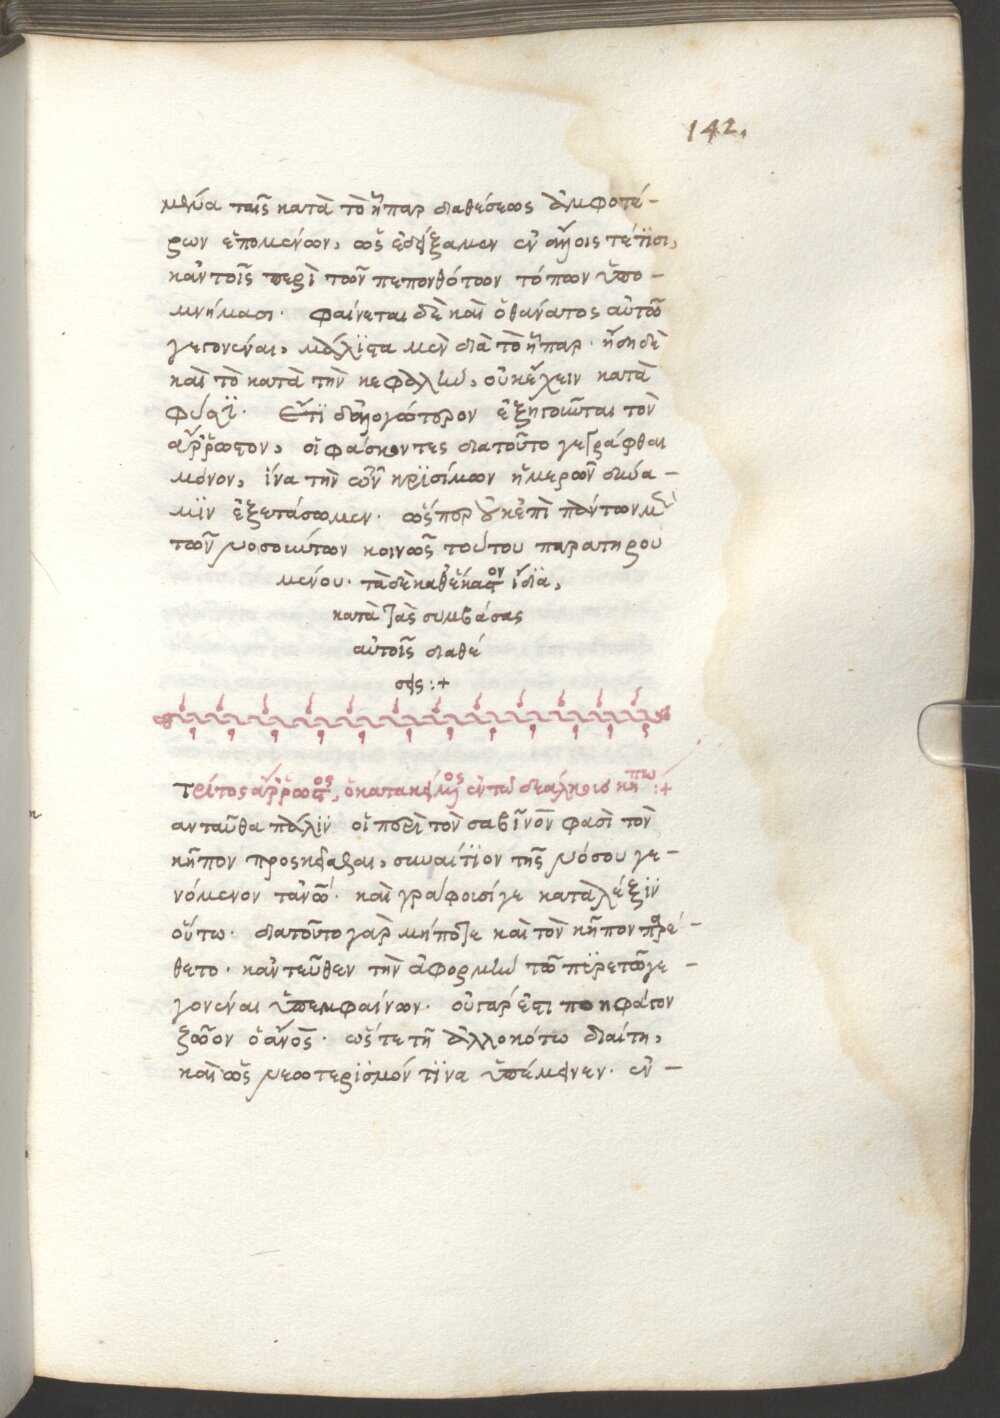 142.
μενα ταῖς κατὰ τὸ ἧπαρ διαθέσεως ἀμφοτέ-
ρων ἑπομένων, ὡς ἐδείξαμεν ἐν ἄλλοις τέ τισι,
κἀν τοῖς περὶ τῶν πεπονθότων τόπων ὑπο-
μνήμασι. φαίνεται δὲ καὶ ὁ θάνατος αὐτῶ
γεγονέναι, μάλιστα μὲν διὰ τὸ ἧπαρ. ἤδη δὲ
καὶ τὸ κατὰ τὴν κεφαλὴν, οὐκ ἔχειν κατὰ
φύσϊ. ἔτϊ δ' ἀλογώτερον ἐξηγοῦνται τὸν
ἄῤῥωστον, οἱ φάσκοντες διατοῦτο γεγράφθαι
μόνον, ἵνα τὴν τῶν κρϊσίμων ἡμερῶν δύνα-
μϊν ἐξετάσωμεν. ὥσπερ οὐκ ἐπὶ πάντων μὲν
τῶν νοσούντων κοινῶς τούτου παρατηρου
μένου. τὰ δὲ καθ' ἕκαστον ἰδία,
κατὰ τὰς συμβάσας
αὐτοῖς διαθέ
σεις :+
τρίτος ἄῤῥωστος, ὁ κατακείμενος ἐν τῶ δεάλκους κήπω :+
ἐνταῦθα πάλϊν οἱ περὶ τὸν σαβῖνον φασὶ τὸν
κῆπον προσκεῖσθαι, συναίτϊον τῆς νόσου γε-
νόμενον τἀνῶ. καὶ γράφουσί γε κατὰ λέξϊν
οὕτω. διατοῦτο γὰρ μήποτε καὶ τὸν κῆπον προσέ-
θετο. κἀντεῦθεν τὴν ἀφορμὴν τῶ πϋρετῶ γε-
γονέναι ὑπεμφαίνων. οὐ γάρ ἐστι ποηφάγον
ζῶον ὁ ἄνος. ὥστε τῆ ἀλλοκότω διαίτη,
καὶ ὡς νεωτερϊσμόν τϊνα ὑπέμεινεν. ἐν-